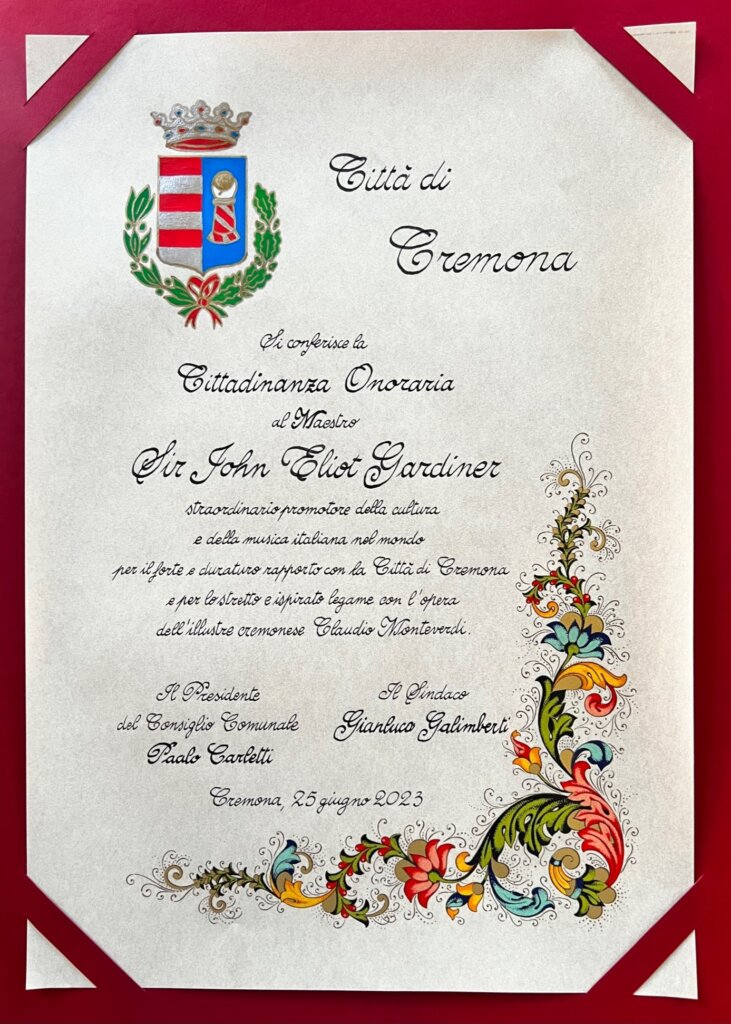 Città di
Cremona
Si conferisce la
Cittadinanza Onoraria
al Maestro
Sir John Eliot Gardiner
straordinario promotore della cultura
e della musica italiana nel mondo
per il forte e duraturo rapporto con la Città di Cremona
e per lo stretto e ispirato legame con l'opera
dell'illustre cremonese Claudio Monteverdi.
Il Presidente
del Consiglio Comunale
Paolo Carletti
Il Sindaco
Gianluca Galimberti
Cremona, 25 giugno 2023